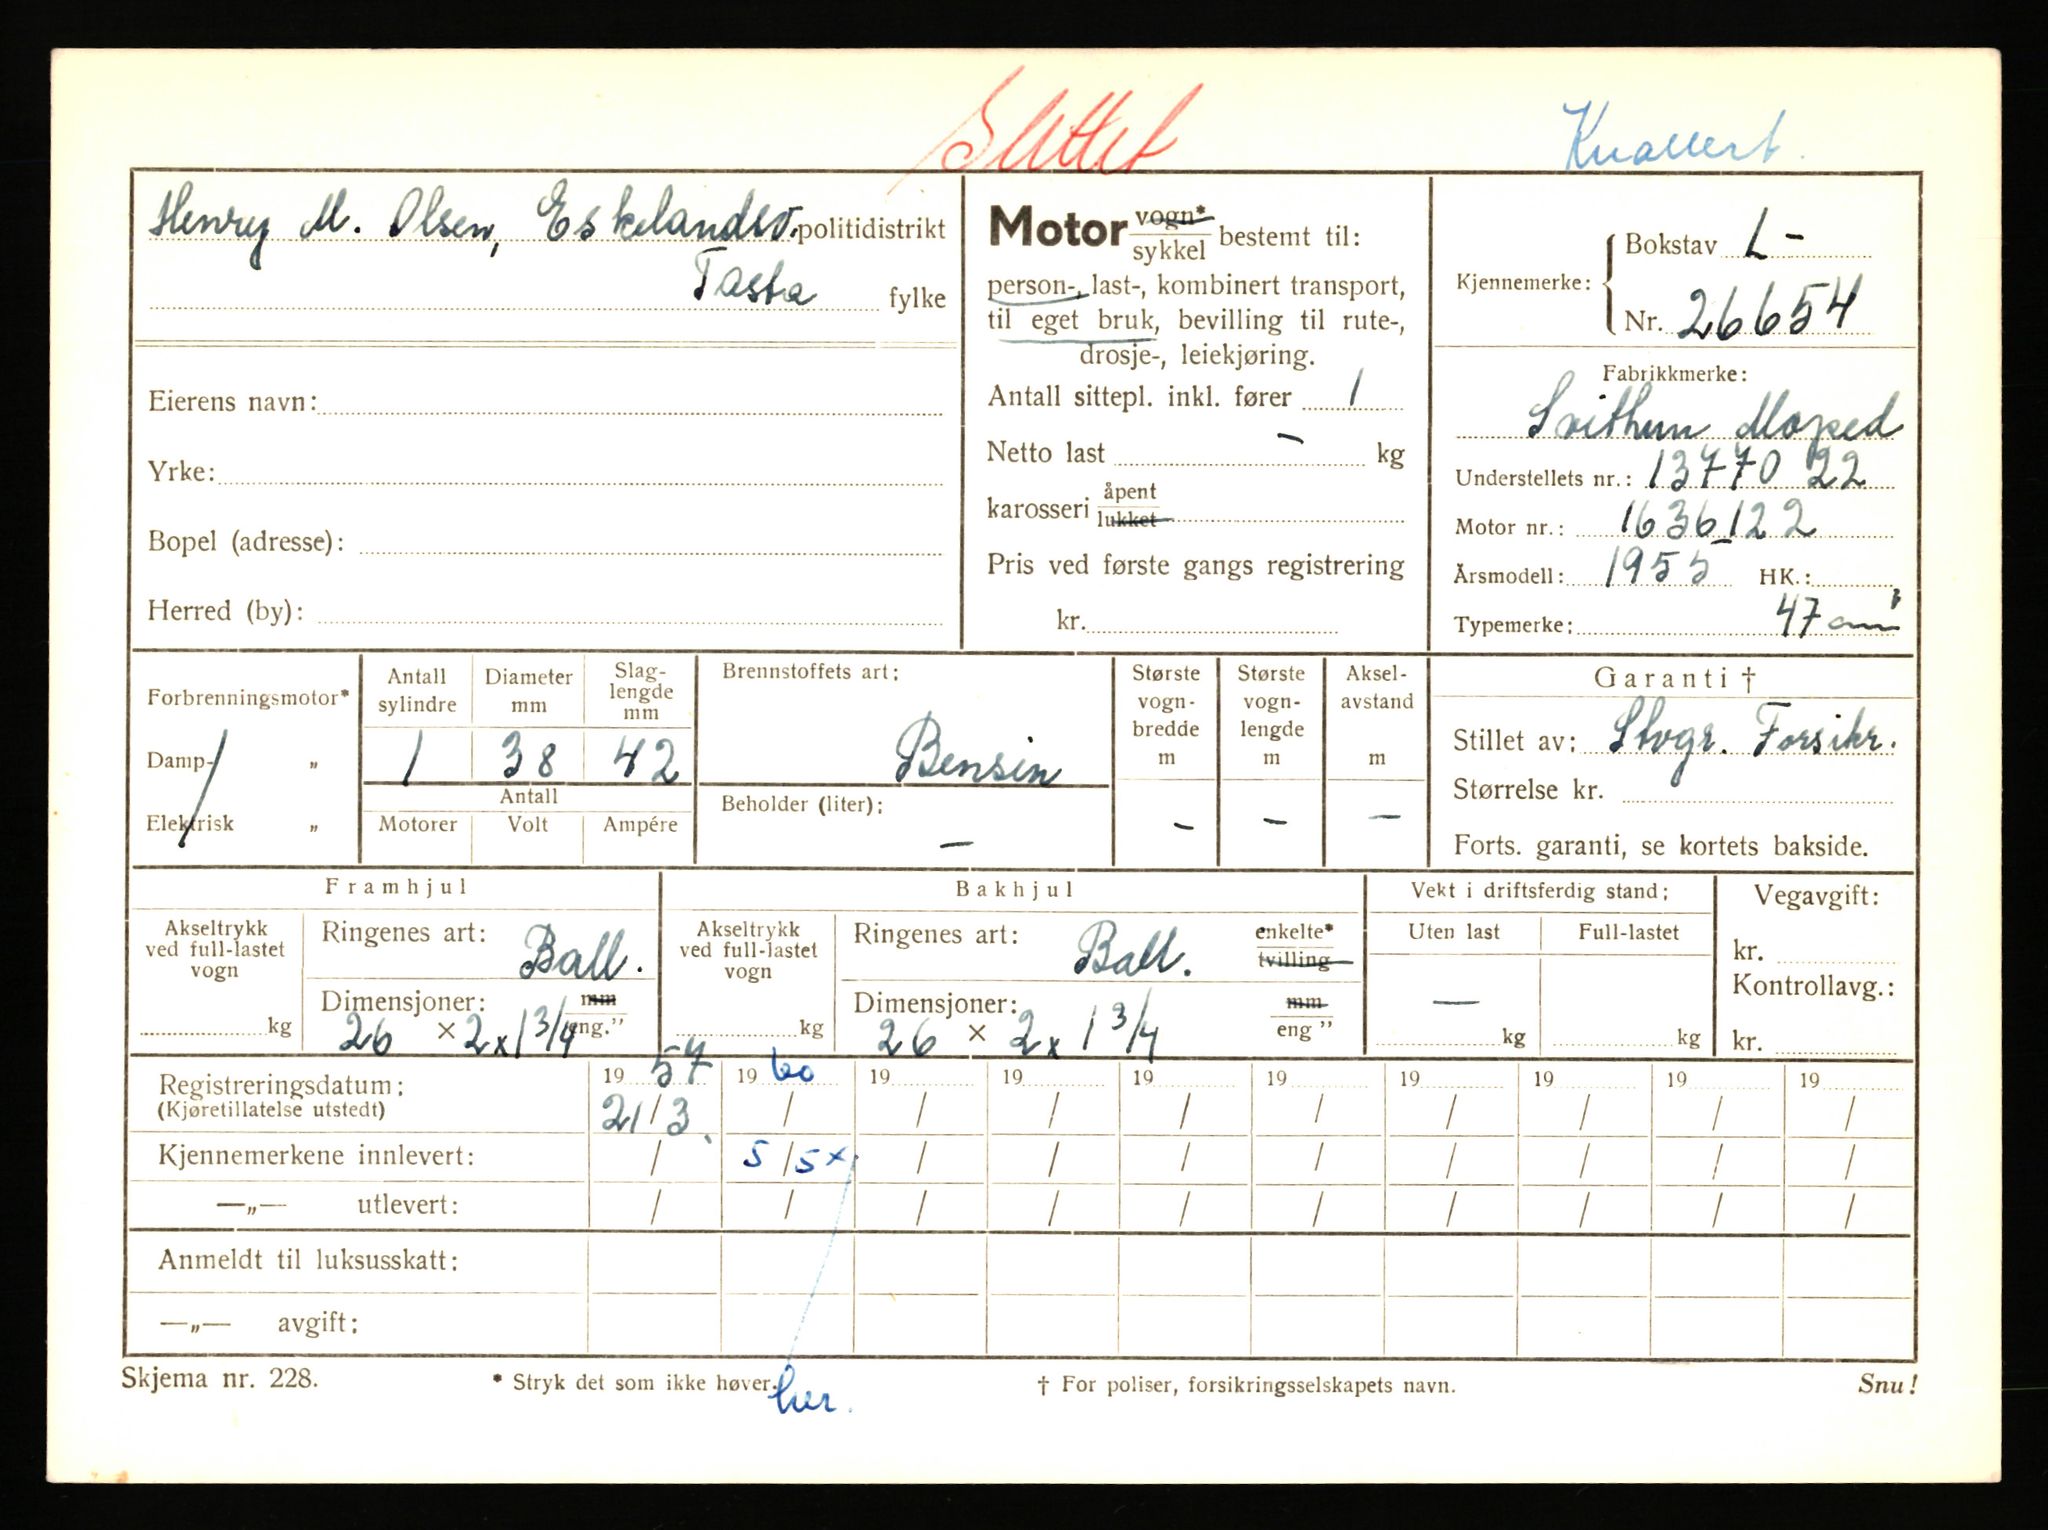 Slettet
Knallert.
Henry M. Olsen, Eskelandsv. politidistrikt
Tasta fylke
Eierens navn:
Yrke:
Bopel (adresse):
Herred (by):
Motor vogn* sykkel bestemt til:
person-, last-, kombinert transport,
til eget bruk, bevilling til rute-,
drosje-, leiekjøring.
Antall sittepl. inkl. fører 1
Netto last – kg
karosseri åpent lukket
Pris ved første gangs registrering
kr.
Kjennemerke: Bokstav L-
Nr. 26654
Fabrikkmerke:
Svithun Moped
Understellets nr.: 13770 22
Motor nr.: 1636122
Årsmodell: 1955 HK.:
Typemerke: 47 cm³
Forbrenningsmotor*
Damp- „
Elektrisk „
Antall sylindre Diameter mm Slag-lengde mm
1 38 42
Antall
Motorer Volt Ampére
Brennstoffets art:
Bensin
Beholder (liter):
–
Største vogn-bredde m Største vogn-lengde m Aksel-avstand m
– – –
Garanti †
Stillet av: Stvgr. Forsikr.
Størrelse kr.
Forts. garanti, se kortets bakside.
Framhjul
Akseltrykk ved full-lastet vogn
kg
Ringenes art: Ball.
Dimensjoner: mm eng.”
26 × 2 x 1 3/4
Bakhjul
Akseltrykk ved full-lastet vogn
kg
Ringenes art: Ball. enkelte* tvilling
Dimensjoner: mm eng ”
26 × 2 x 1 3/4
Vekt i driftsferdig stand:
Uten last Full-lastet
—
kg kg
Vegavgift:
kr.
Kontrollavg.:
kr.
Registreringsdatum: 19 57 19 60 19 19 19 19 19 19 19 19
(Kjøretillatelse utstedt) 21/3. / / / / / / / / /
Kjennemerkene innlevert: / 5/5 x / / / / / / / /
—„— utlevert: / / / / / / / / / /
Anmeldt til luksusskatt:
—„— avgift:
Skjema nr. 228. * Stryk det som ikke høver. † For poliser, forsikringsselskapets navn. Snu!
her.